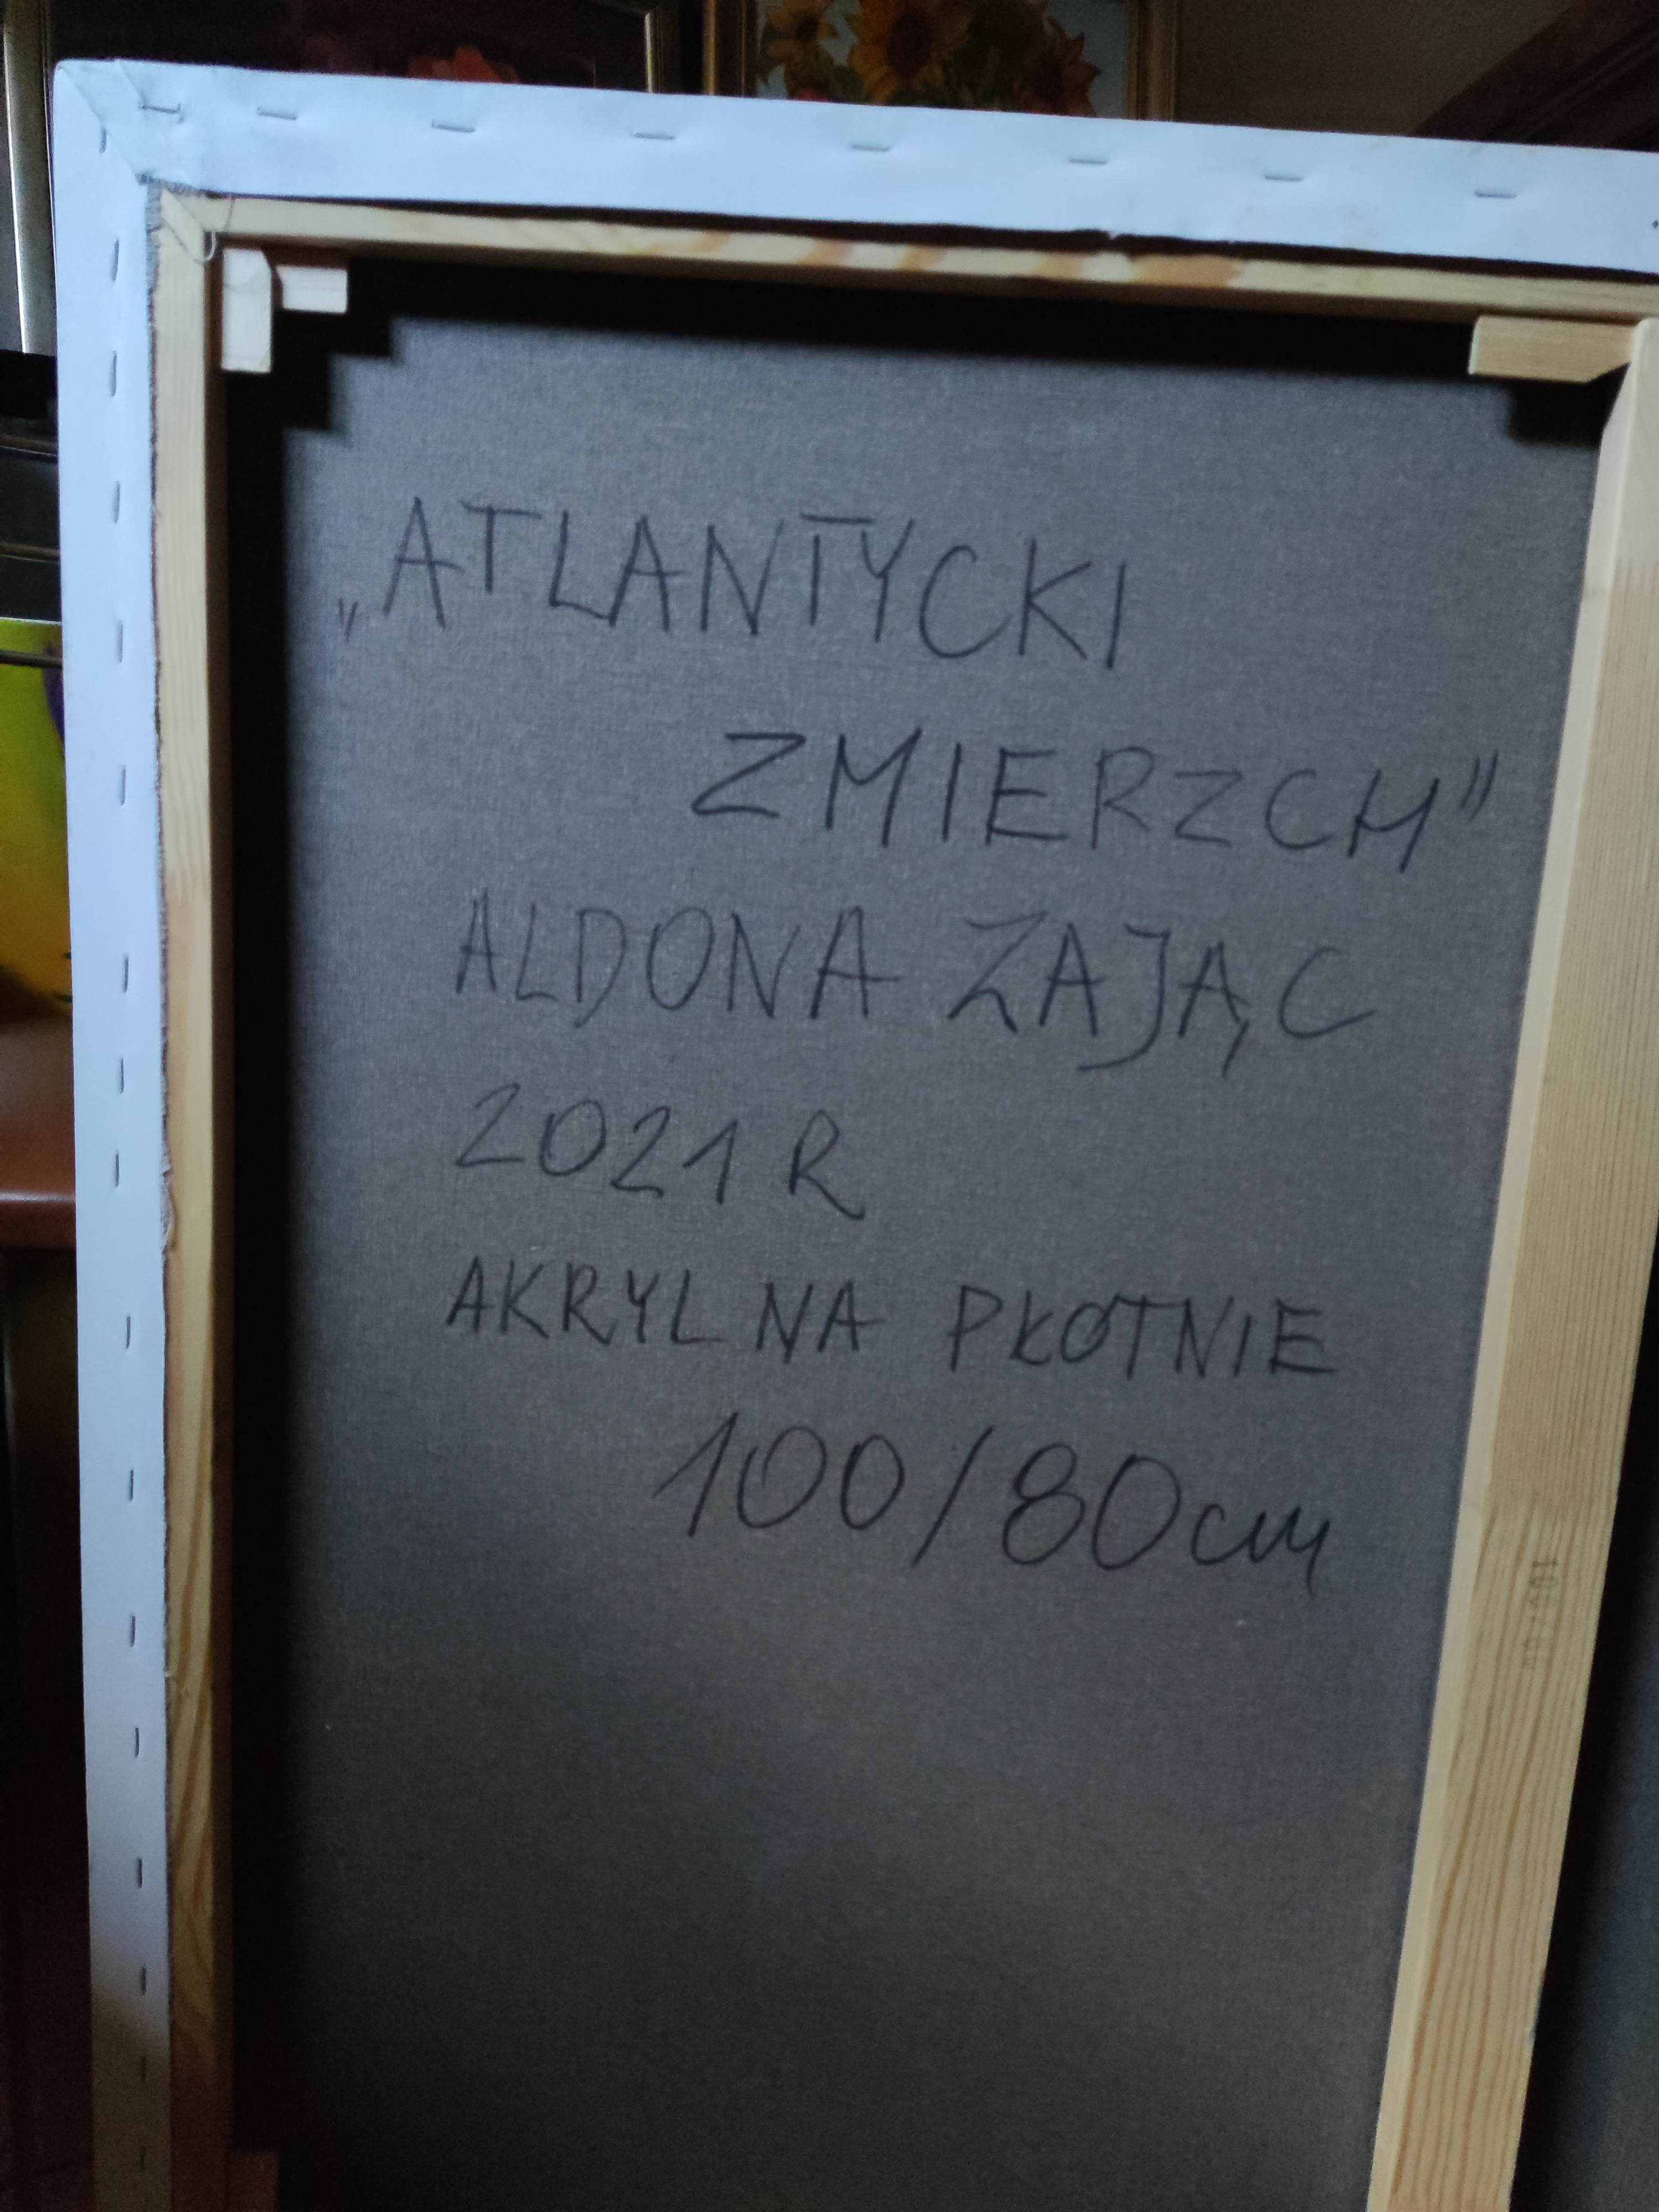 „ATLANTYCKI
ZMIERZCH"
ALDONA ZAJĄC
2021 R
AKRYL NA PŁOTNIE
100/80cm